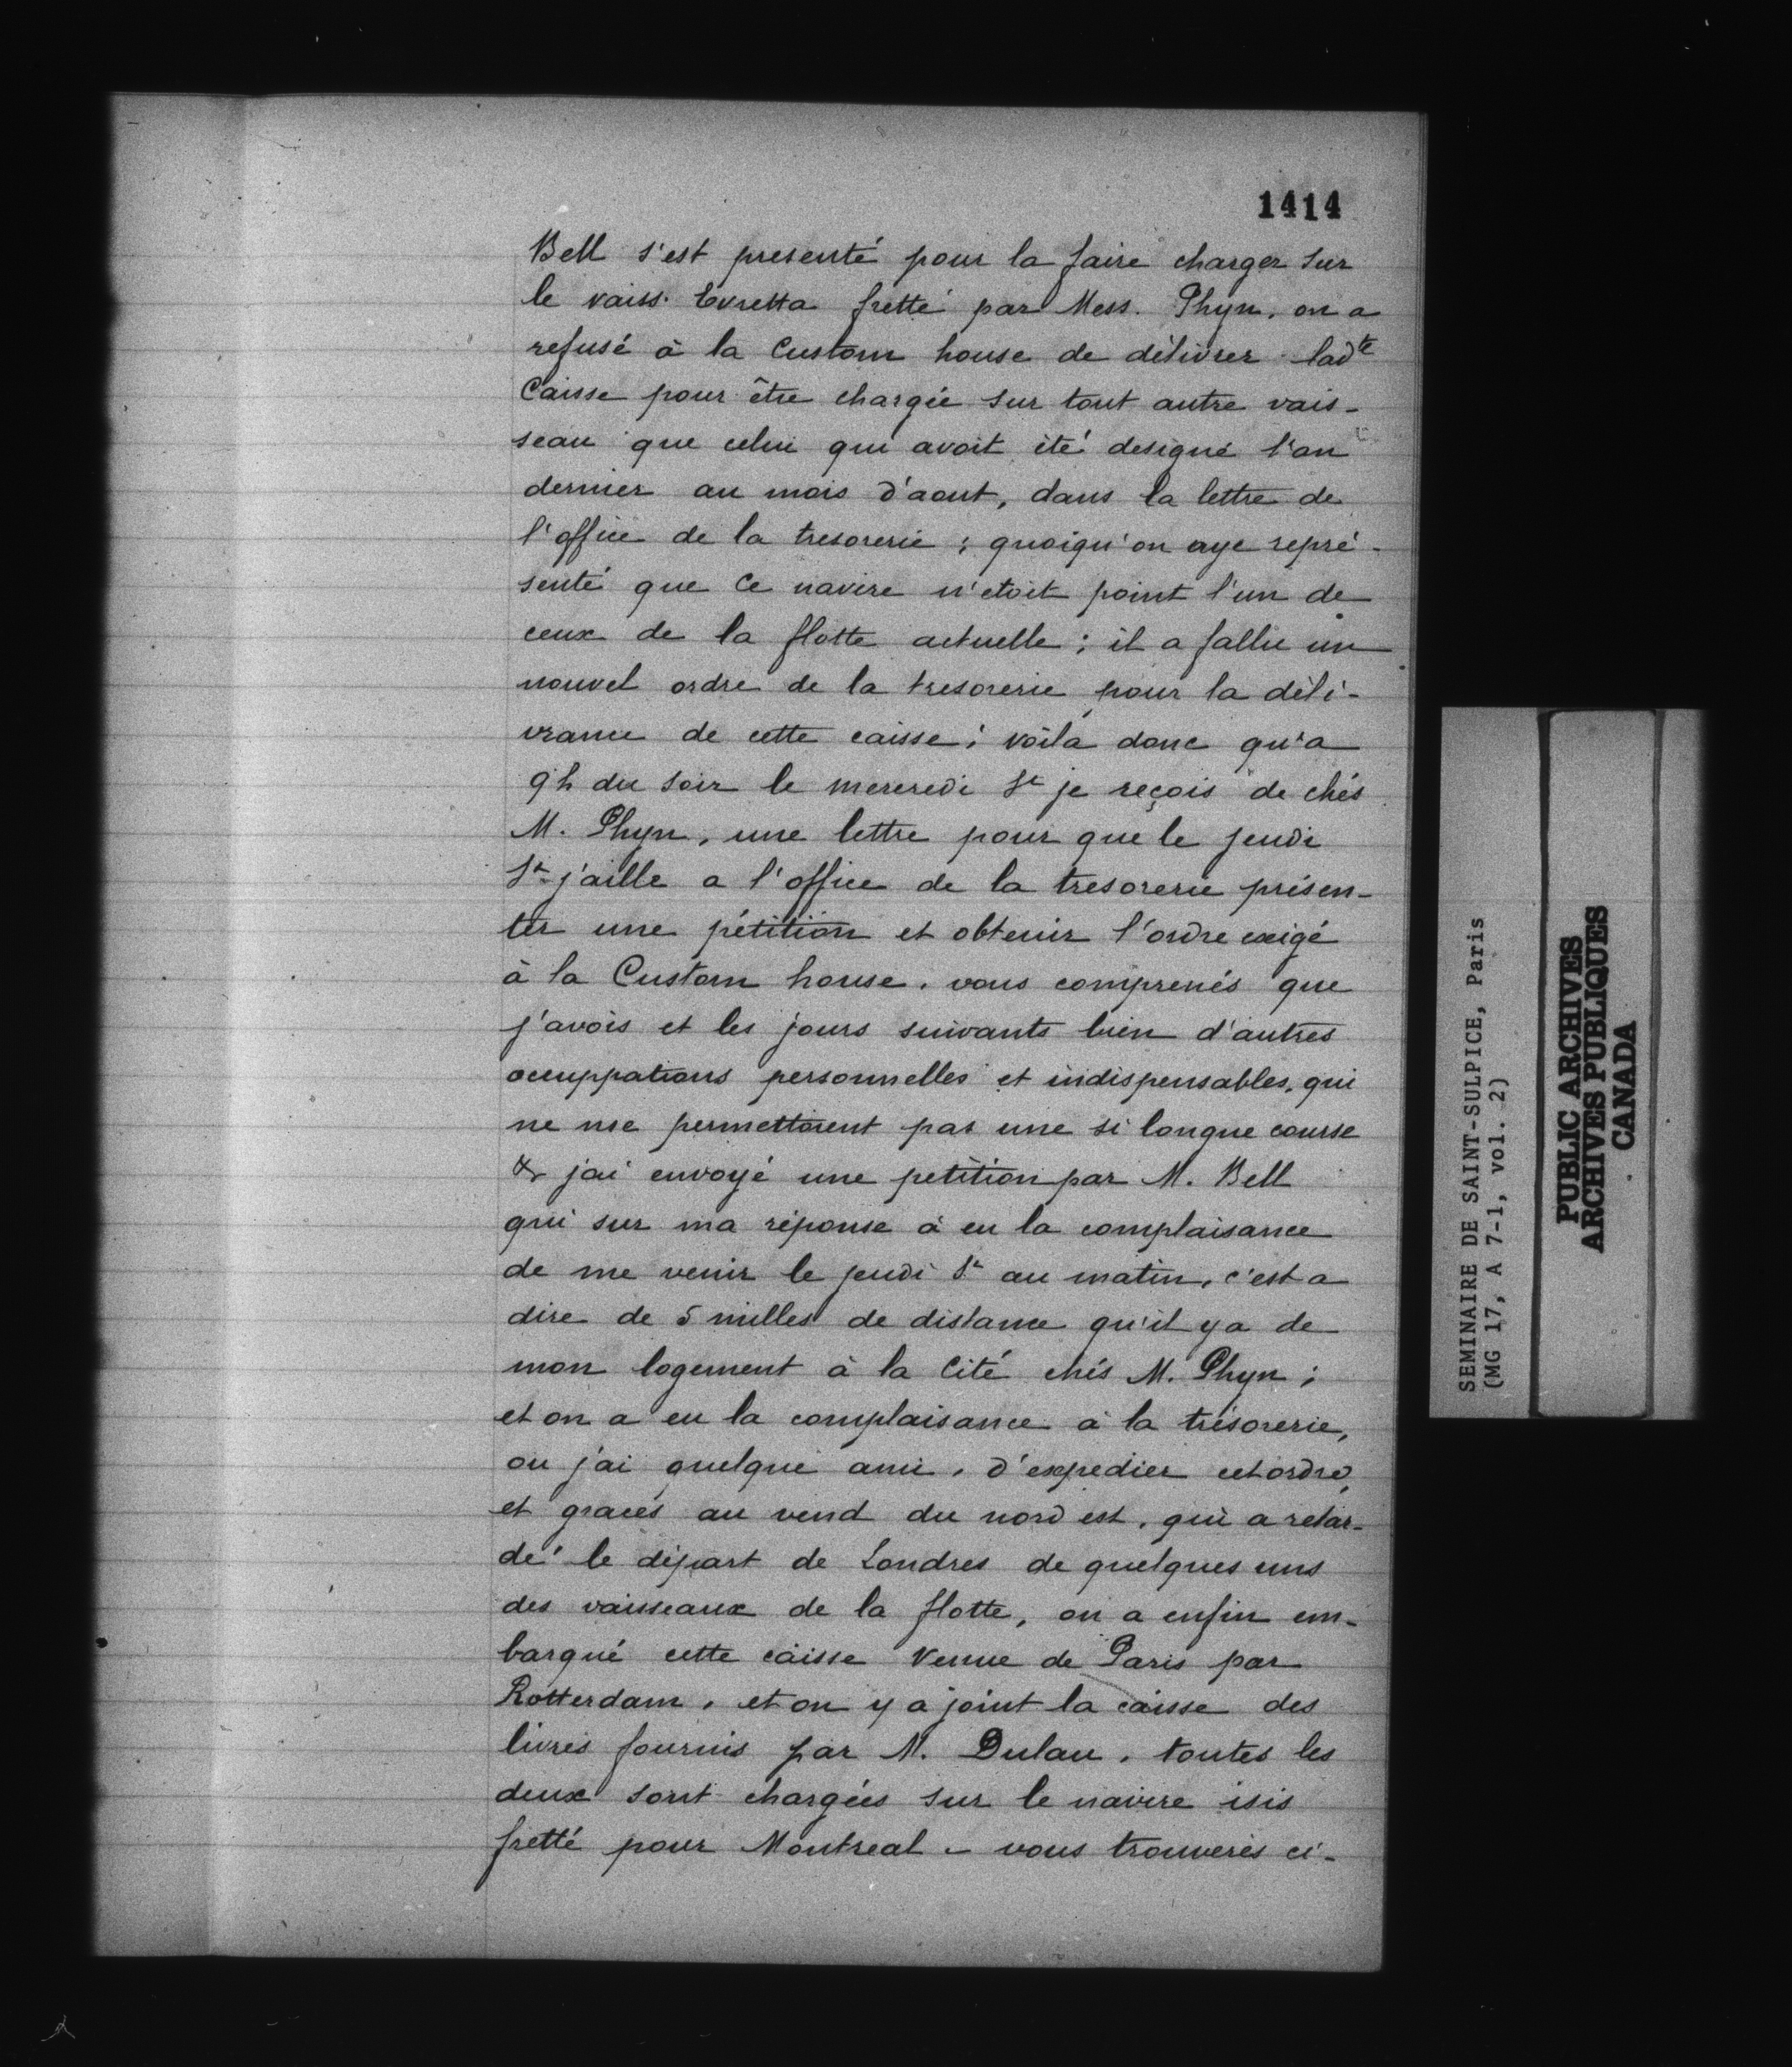 1414
Bell s'est presenté pour la faire charger sur
le vaiss. Evretta fretté par Mess. Phyn, on a
refusé à la Custom house de délivrer ladte
Caisse pour être chargée sur tout autre vais-
seau que celui qui avoit été designé l'an
dernier au mois d'aout, dans la lettre de
l'office de la tresorerie ; quoiqu'on aye repré-
senté que ce navire n'etoit point l'un de
ceux de la flotte actuelle ; il a fallu un
nouvel ordre de la tresorerie pour la déli-
vrance de cette caisse ; voila donc qu'a
9 h du soir le mercredi St je reçois de chés
M. Phyn, une lettre pour que le jeudi
St j'aille a l'office de la tresorerie présen-
ter une pétition et obtenir l'ordre exigé
à la Custom house. vous comprenés que
j'avois et les jours suivants bien d'autres
occuppations personnelles et indispensables, qui
ne me permettoient pas une si longue course
& j'ai envoyé une petition par M. Bell
qui sur ma réponse à eu la complaisance
de me venir le jeudi St au matin, c'est a
dire de 5 milles de distance qu'il y a de
mon logement à la Cité chés M. Phyn ;
et on a eu la complaisance à la trésorerie,
ou j'ai quelque ami, d'expedier cet ordre,
et graces au vend du nord est, qui a retar-
dé le départ de Londres de quelques uns
des vaisseaux de la flotte, on a enfin em-
barqué cette caisse venue de Paris par
Rotterdam, et on y a joint la caisse des
livres fournis par M. Dulau. toutes les
deux sont chargées sur le navire isis
fretté pour Montreal - vous trouverés ci-
SEMINAIRE DE SAINT-SULPICE, Paris
(MG 17, A 7-1, vol. 2)
PUBLIC ARCHIVES
ARCHIVES PUBLIQUES
CANADA